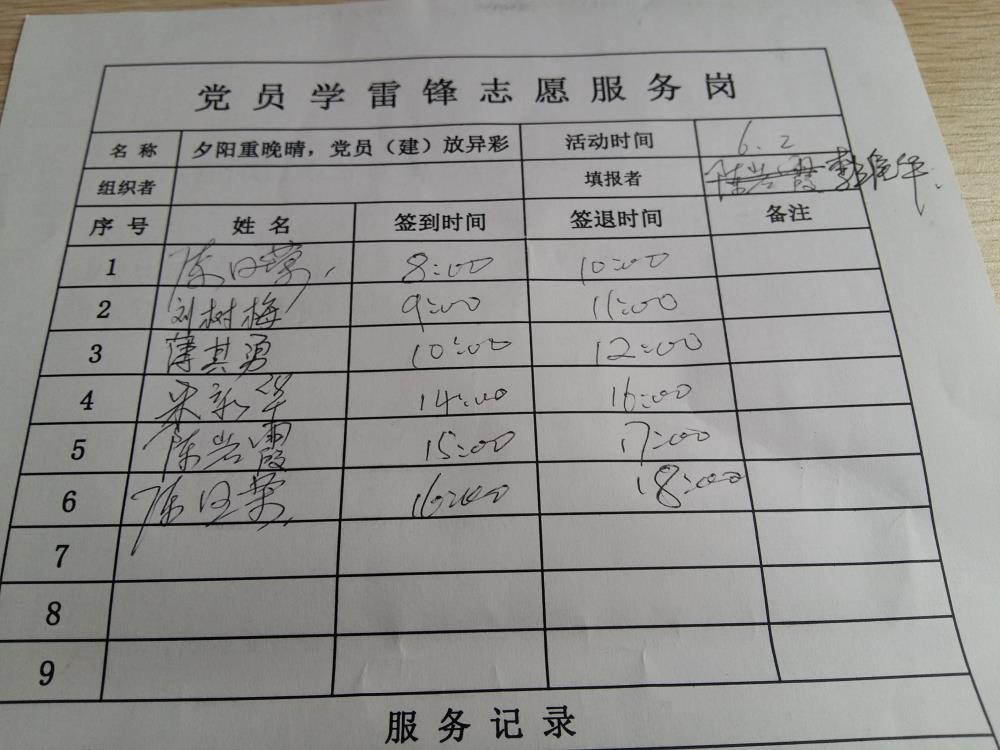 党员学雷锋志愿服务岗
名称 夕阳重晚晴，党员（建）放异彩 活动时间 6.2
组织者 填报者 陈岩霞
序号 姓名 签到时间 签退时间 备注
1 8:00 10:00
2 刘树梅 9:00 11:00
3 薄其勇 10:00 12:00
4 宋新华 14:00 16:00
5 陈岩霞 15:00 17:00
6 16:00 18:00
7
8
9
服务记录